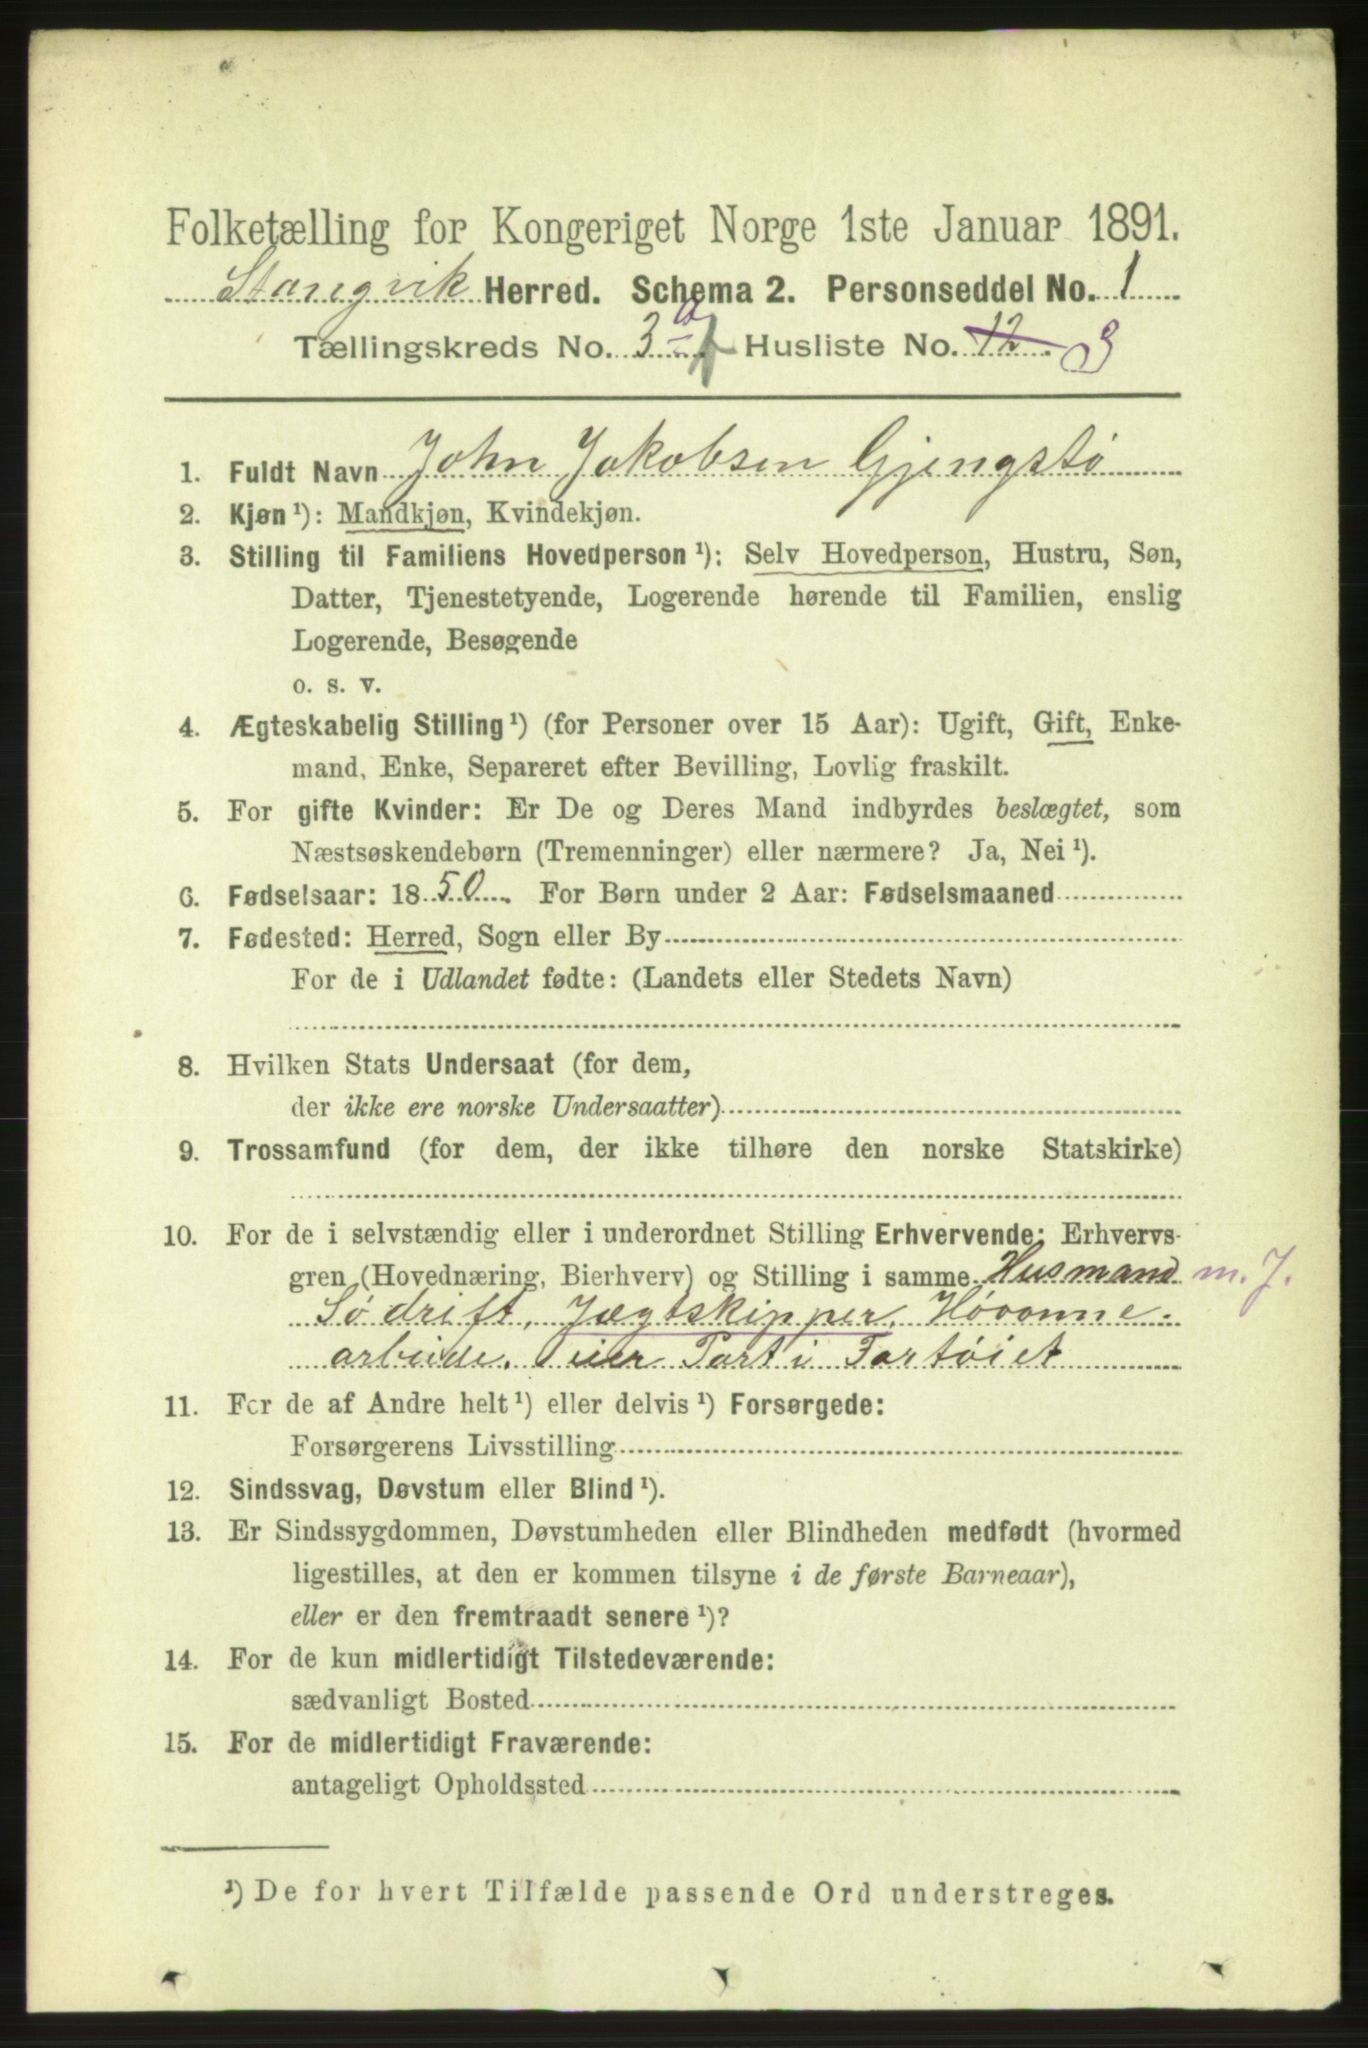 Folketælling for Kongeriget Norge 1ste Januar 1891.
Stangvik Herred. Schema 2. Personseddel No. 1
Tællingskreds No. 3 a Husliste No. 12. 3
1. Fuldt Navn John Jakobsen Gjengstø
2. Kjøn ¹): Mandkjøn, Kvindekjøn.
3. Stilling til Familiens Hovedperson ¹): Selv Hovedperson, Hustru, Søn,
Datter, Tjenestetyende, Logerende hørende til Familien, enslig
Logerende, Besøgende
o. s. v.
4. Ægteskabelig Stilling ¹) (for Personer over 15 Aar): Ugift, Gift, Enke-
mand, Enke, Separeret efter Bevilling, Lovlig fraskilt.
5. For gifte Kvinder: Er De og Deres Mand indbyrdes beslægtet, som
Næstsøskendebørn (Tremenninger) eller nærmere? Ja, Nei ¹).
6. Fødselsaar: 1850. For Børn under 2 Aar: Fødselsmaaned
7. Fødested: Herred, Sogn eller By
For de i Udlandet fødte: (Landets eller Stedets Navn)
8. Hvilken Stats Undersaat (for dem,
der ikke ere norske Undersaatter)
9. Trossamfund (for dem, der ikke tilhøre den norske Statskirke)
10. For de i selvstændig eller i underordnet Stilling Erhvervende: Erhvervs-
gren (Hovednæring, Bierhverv) og Stilling i samme Husmand m. J.
Sødrift, Jægtskipper, Hövonne-
arbeide. eier Part i Fartøiet
11. For de af Andre helt ¹) eller delvis ¹) Forsørgede:
Forsørgerens Livsstilling
12. Sindssvag, Døvstum eller Blind ¹).
13. Er Sindssygdommen, Døvstumheden eller Blindheden medfødt (hvormed
ligestilles, at den er kommen tilsyne i de første Barneaar),
eller er den fremtraadt senere ¹)?
14. For de kun midlertidigt Tilstedeværende:
sædvanligt Bosted
15. For de midlertidigt Fraværende:
antageligt Opholdssted
¹) De for hvert Tilfælde passende Ord understreges.